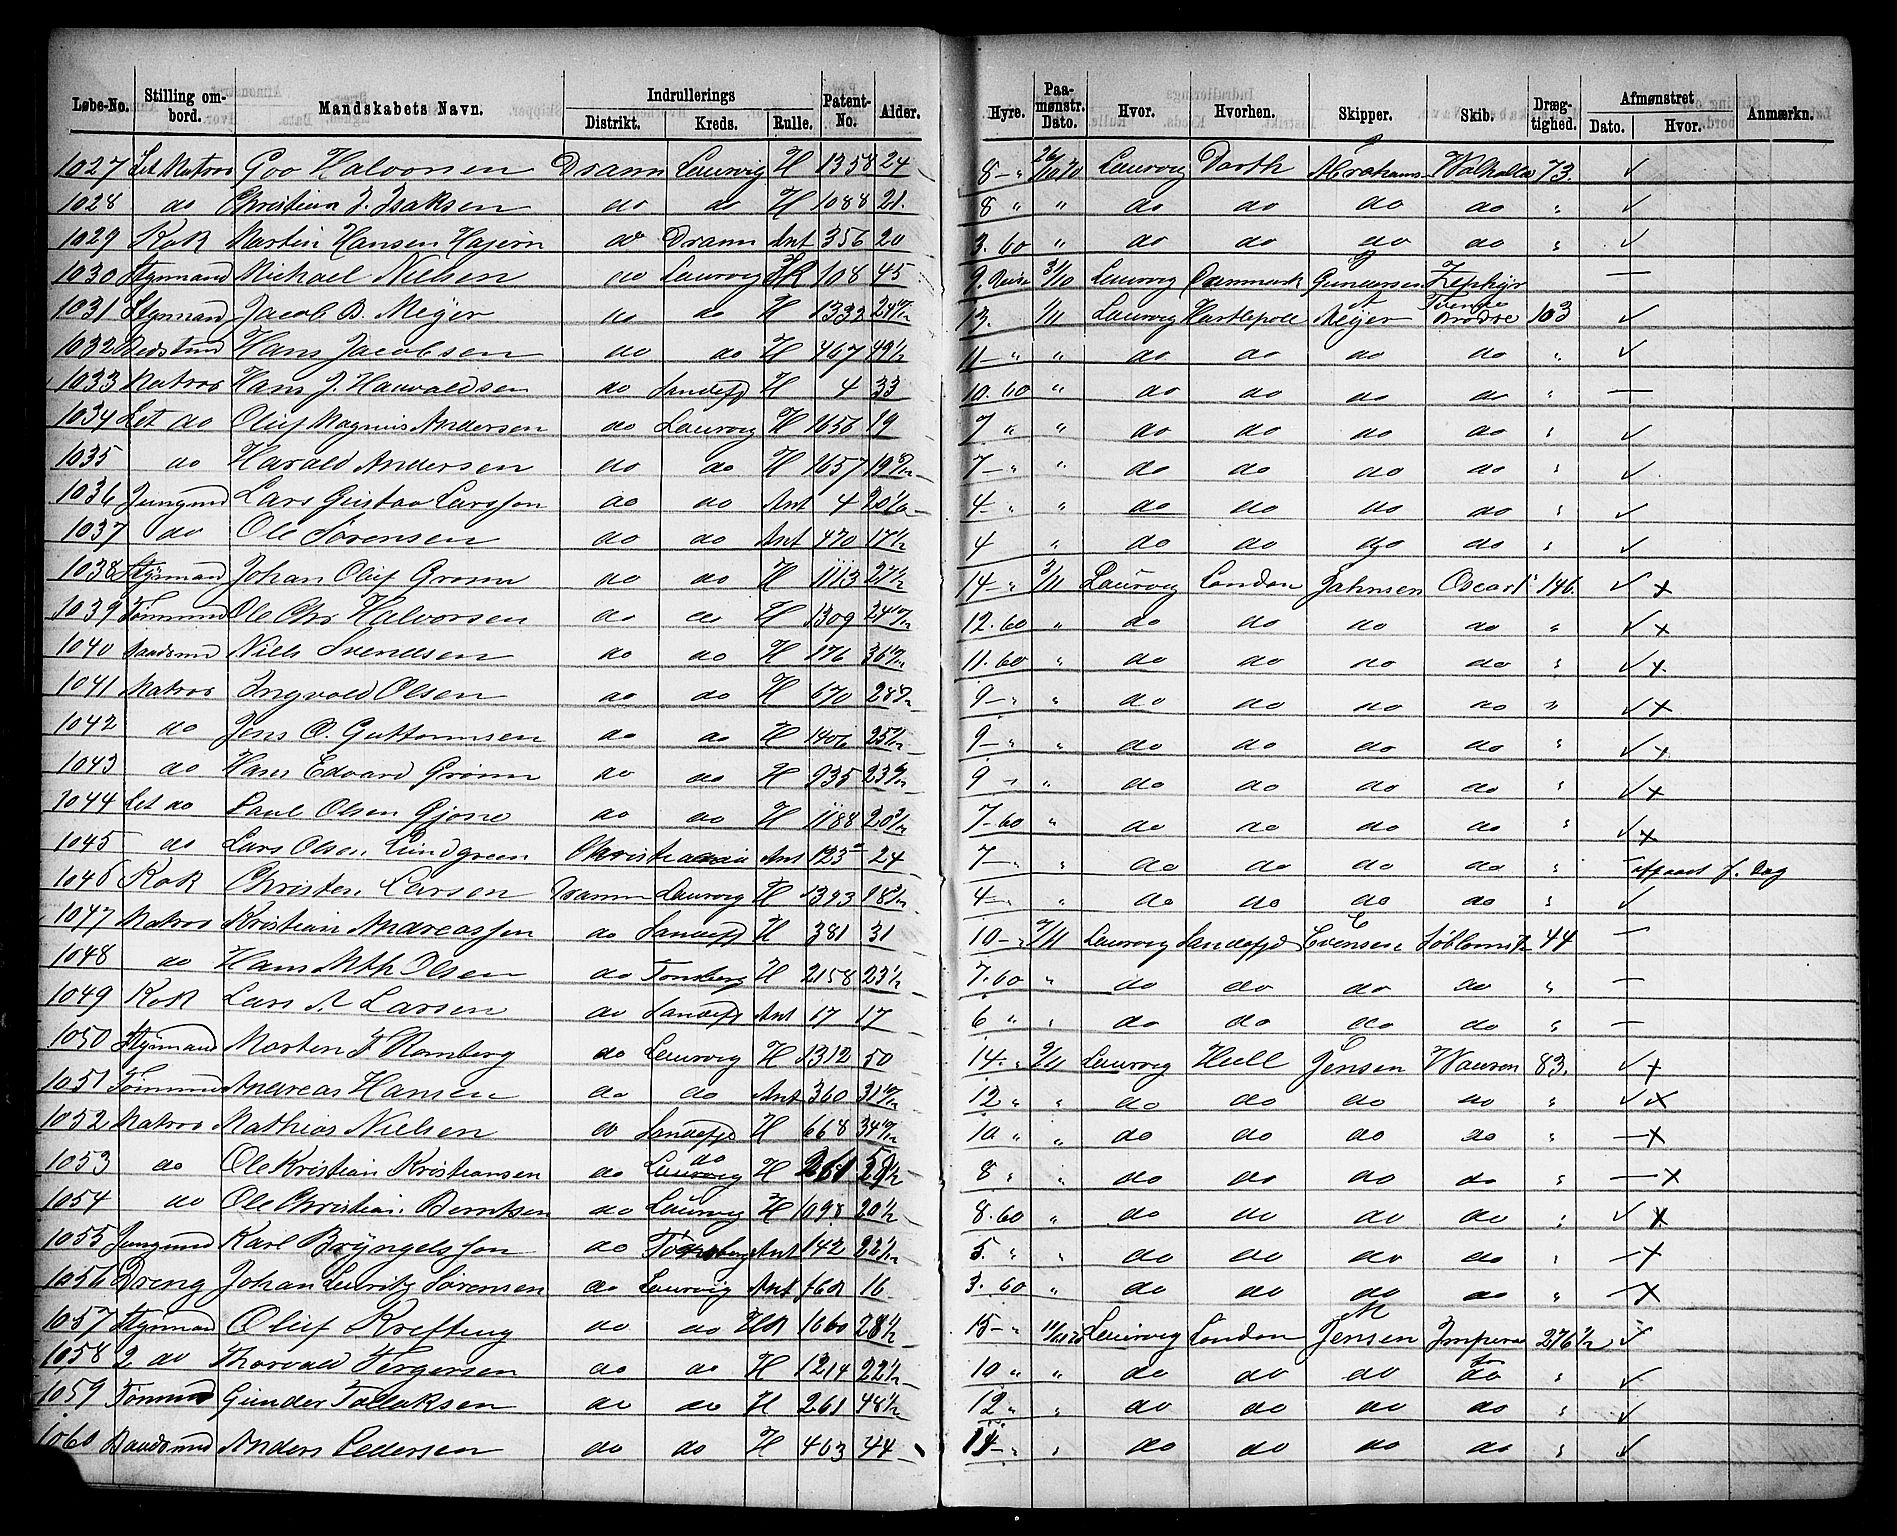 Løbe-No. Stilling ombord. Mandskabets Navn. Indrullerings Distrikt. Kreds. Rulle. Patent-No. Alder. Hyre. Paamønstr. Dato. Hvor. Hvorhen. Skipper. Skib. Drægtighed. Afmønstret Dato. Hvor. Anmærkn.
1027 Let Matros Halvorsen Dramn Laurvig H 1358 24 8 - " 26/10 70 Laurvig Abrahams Walhalla 73. ✓
1028 do Christian J. Isaksen do do H 1088 21 8 " " do do do do " ✓
1029 Kok Martin Hansen do Dramn Ant 356 20 3.60 " do do do do " ✓
1030 Styrmand Michael Nielsen do Laurvig 108 45 9. Reise 31/10 Laurvig Danmark Gundersen Zephyr —
1031 Styrmand Jacob B. Meyer do do H 1332 13. 1/11 Laurvig Hartlepoll Meyer Tvende Brødre 103 ✓
1032 Hans Jacobsen do do H 467 49½ 11 - " " do do do do " ✓
1033 Matros Hans J. do Sandefj H 4 33 10.60 " do do do do " —
1034 Let do Oluf Magnus Andersen do Laurvig H 1656 19 7 " " do do do do " ✓
1035 do Harald Andersen do do H 1657 7 - " " do do do do " ✓
1036 Jungmd Lars Gustav Larsson do do Ant 4 4 - " do do do do " ✓
1037 do Ole Sørensen do do Ant 470 17½ 4 " do do do do " ✓
1038 Styrmand Johan Oluf Grønn do do H 1113 14 - " 3/11 Laurvig London Jahnsen Oscar 146. ✓ x
1039 Tømmnd Ole Chr Halvorsen do do H 1309 12.60 " do do do do " ✓ x
1040 Baadsmd Niels Svendsen do do H 176 11.60 " do do do do " ✓ x
1041 Matros Ingvald Olsen do do H 670 9 - " " do do do do " ✓ x
1042 do Jens O. Guttormsen do do H 1406 9 - " " do do do do " ✓ x
1043 do Hans Edvard Grønn do do H 935 9 - " do do do do " ✓ x
1044 Let do Paul Olsen Gjone do do H 1188 7-60 " do do do do " ✓ x
1045 do Lars Olsen Lundgreen Christiania Ant 123 24 7 - " " do do do do " — f. Dag
1046 Kok Christen Larsen Dramn Laurvig H 1393 4 - " do do do do " ✓
1047 Matros Kristian Andreassen do Sandefj H 381 31 10 - " 7/11 Laurvig Sandefjd Evensen 44 —
1048 do Hans Mth Olsen do Tønsberg H 2158 23½ 7.60 " do do do do " —
1049 Kok Lars A Larsen do Sandefj Ant 17 17 6 " " do do do do " —
1050 Styrmand Morten F Ramberg do Laurvig H 1312 50 14. " 9/11 Laurvig Hull Jensen 83. ✓ x
1051 Tømmnd Andreas Hansen do do Ant 360 12 " " do do do do " ✓ x
1052 Matros Mathias Nielsen do Sandefjd H 668 10 " " do do do do " — x
1053 do Ole Kristian Kristiansen do do Laurvig H 261 8 " " do do do do " — x
1054 do Ole Christian Berntsen do Laurvig H 1098 20½ 8.60 " do do do do " ✓ x
1055 Jungmd Karl Bryngelsson do Tønsberg Ant 142 22½ 5. " " do do do do " — x
1056 Dreng Johan Lauritz Sørensen do Laurvig Ant 16 3.60 " do do do do " — x
1057 Styrmand Oluf Krefting do do 1060 28½ 15 - " 11/11 70 Laurvig London M Jensen Imperator 276½ ✓
1058 2 do Thorvald Jørgensen do do H 1214 22½ 10 " " do do do do " ✓
1059 Tømmd Gunder Tollaksen do do H 261 48½ 12 " " do do do do " ✓
1060 Baadsmd Anders Pedersen do do H 403 44 14 - " " do do do do " ✓